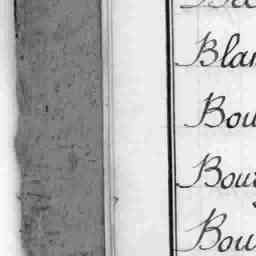 Blan
Bou
Bour
Bou